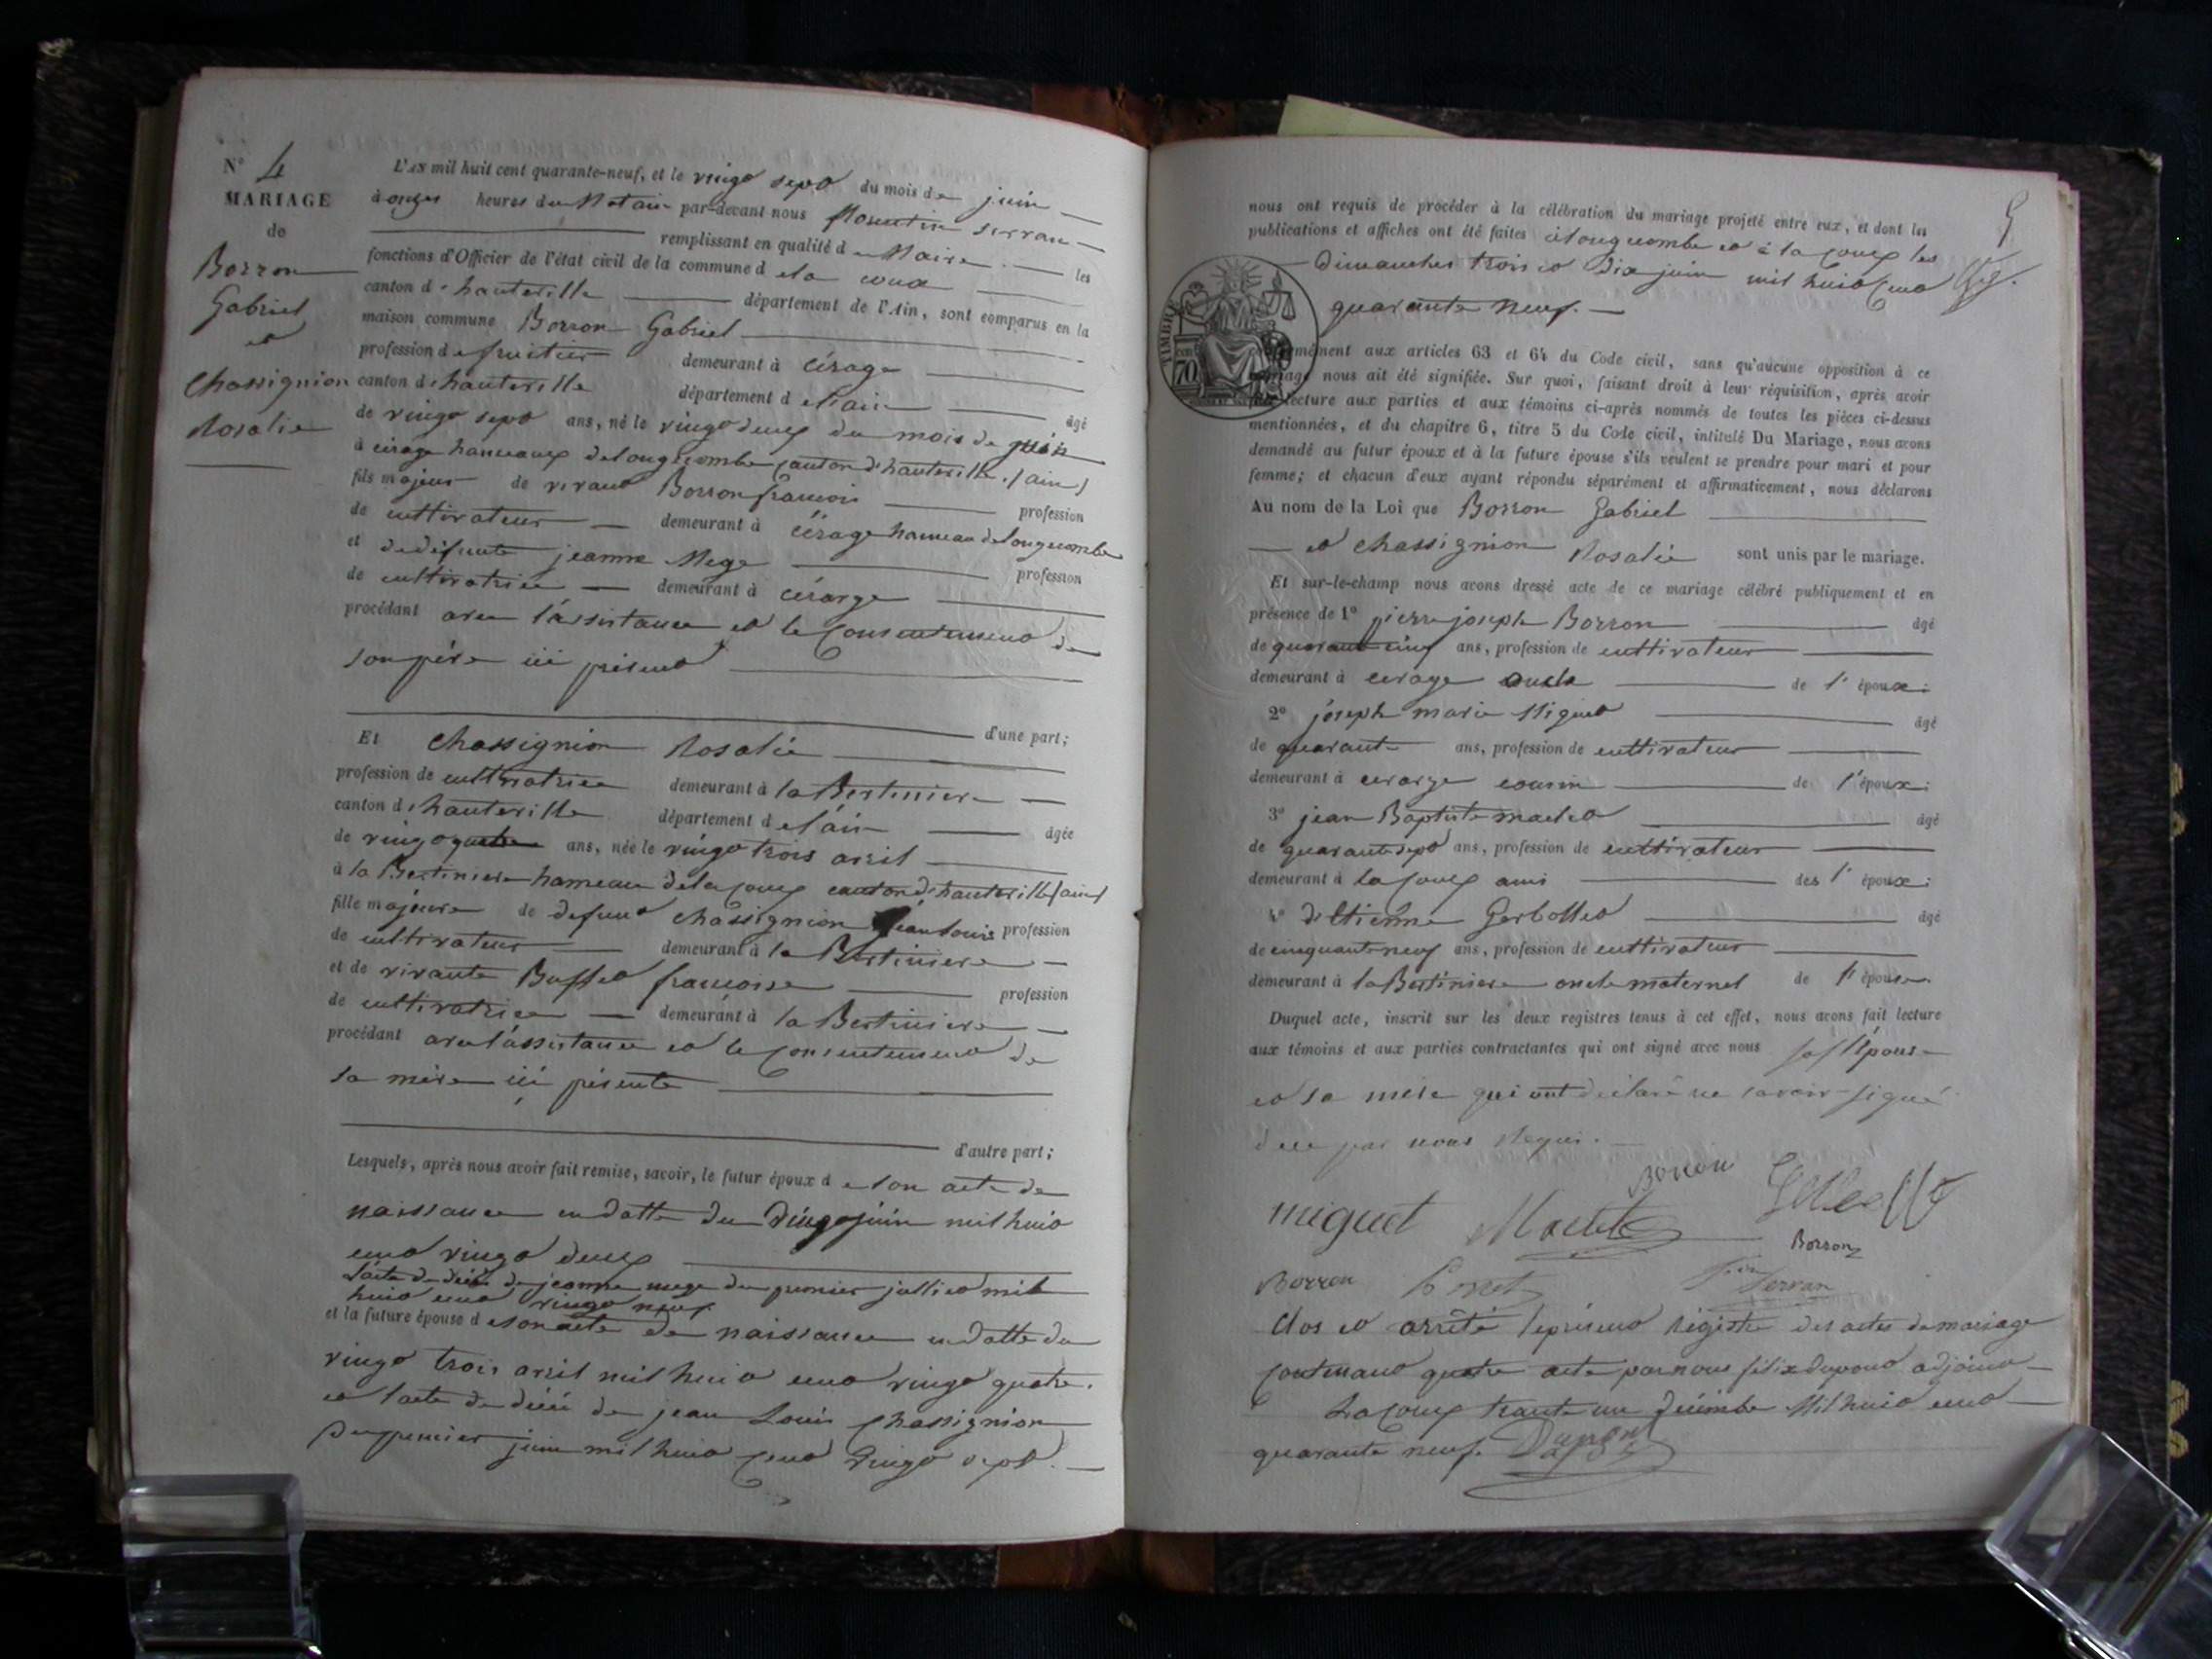 N° 4
MARIAGE
de
Borron
Gabriel
et
Chassignion
Rosalie
L'AN mil huit cent quarante-neuf, et le vingt sept du mois de juin
à onzes heures du Matain par-devant nous serran
remplissant en qualité de Maire les
fonctions d'Officier de l'état civil de la commune de la coux
canton d'hauteville département de l'Ain, sont comparus en la
maison commune Borron Gabriel
profession de fruitier demeurant à Cérage
canton d'hauteville département de l'ain âgé
de vingt sept ans, né le vingt deux du mois de juin
à cirage hameaux de longecombe canton d'hauteville (ain)
fils majeur de vivant Borron francois profession
de cultivateur demeurant à Cérage hameau de longecombe
et de défunte jeanne Mege profession
de cultivatrice demeurant à cérarge
procédant avec l'assistance et le consentement de
son père ici présent
d'une part;
Et Chassignion Rosalie
profession de cultivatrice demeurant à la Bertiniere
canton d'hauteville département de l'ain âgée
de vingt quatre ans, née le vingt trois avril
à la Bertiniere hameau de la coux canton d'hauteville (ain)
fille majeure de defunt Chassignion jean louis profession
de cultivateur demeurant à la Bertiniere
et de vivante Buffet francoise profession
de cultivatrice demeurant à la Bertiniere
procédant avec l'assistance et le consentement de
sa mère ici présente
d'autre part;
Lesquels, après nous avoir fait remise, savoir, le futur époux de son acte de
naissance en datte du vingt juin mil huit
cent vingt deux
l'acte de décé de jeanne mege du premier jullieet mil
huit cent vingt neuf
et la future épouse de son acte de naissance en datte du
vingt trois avril mil huit cent vingt quatre.
et l'acte de décé de jean Louis Chassignion
du premier juin mil huit cent vingt sept.
nous ont requis de procéder à la célébration du mariage projeté entre eux, et dont les
publications et affiches ont été faites à longecombe et à la coux les
Dimanches trois et Dix juin mil huit cent
quarante neuf.
TIMBRE
70
conformément aux articles 63 et 64 du Code civil, sans qu'aucune opposition à ce
mariage nous ait été signifiée. Sur quoi, faisant droit à leur réquisition, après avoir
fait lecture aux parties et aux témoins ci-après nommés de toutes les pièces ci-dessus
mentionnées, et du chapitre 6, titre 5 du Code civil, intitulé Du Mariage, nous avons
demandé au futur époux et à la future épouse s'ils veulent se prendre pour mari et pour
femme; et chacun d'eux ayant répondu séparément et affirmativement, nous déclarons
Au nom de la Loi que Borron Gabriel
et Chassignion Rosalie sont unis par le mariage.
Et sur-le-champ nous avons dressé acte de ce mariage célébré publiquement et en
présence de 1° pierre joseph Borron âgé
de quarant cinq ans, profession de cultivateur
demeurant à cerage oncle de l'époux;
2° joseph marie Miguet âgé
de quarante ans, profession de cultivateur
demeurant à cerarge cousin de l'époux;
3° jean Baptiste mactet âgé
de quarante sept ans, profession de cultivateur
demeurant à la coux ami des l'époux;
4° d'Etienne Gerbollet âgé
de cinquante neuf ans, profession de cultivateur
demeurant à la Bertiniere oncle maternel de l'épouse.
Duquel acte, inscrit sur les deux registres tenus à cet effet, nous avons fait lecture
aux témoins et aux parties contractantes qui ont signé avec nous sof l'épouse
et sa mère qui ont déclaré ne savoir signé
de ce par nous Requi.
Borron
miguet Mactet
Borron
Borron Serran
Clos et arrêté le présent régistre des actes de mariage
contenant quatre acte par nous félix dupont adjoint
La coux trante un décimbe Mil huit cent
quarante neuf. Dupont